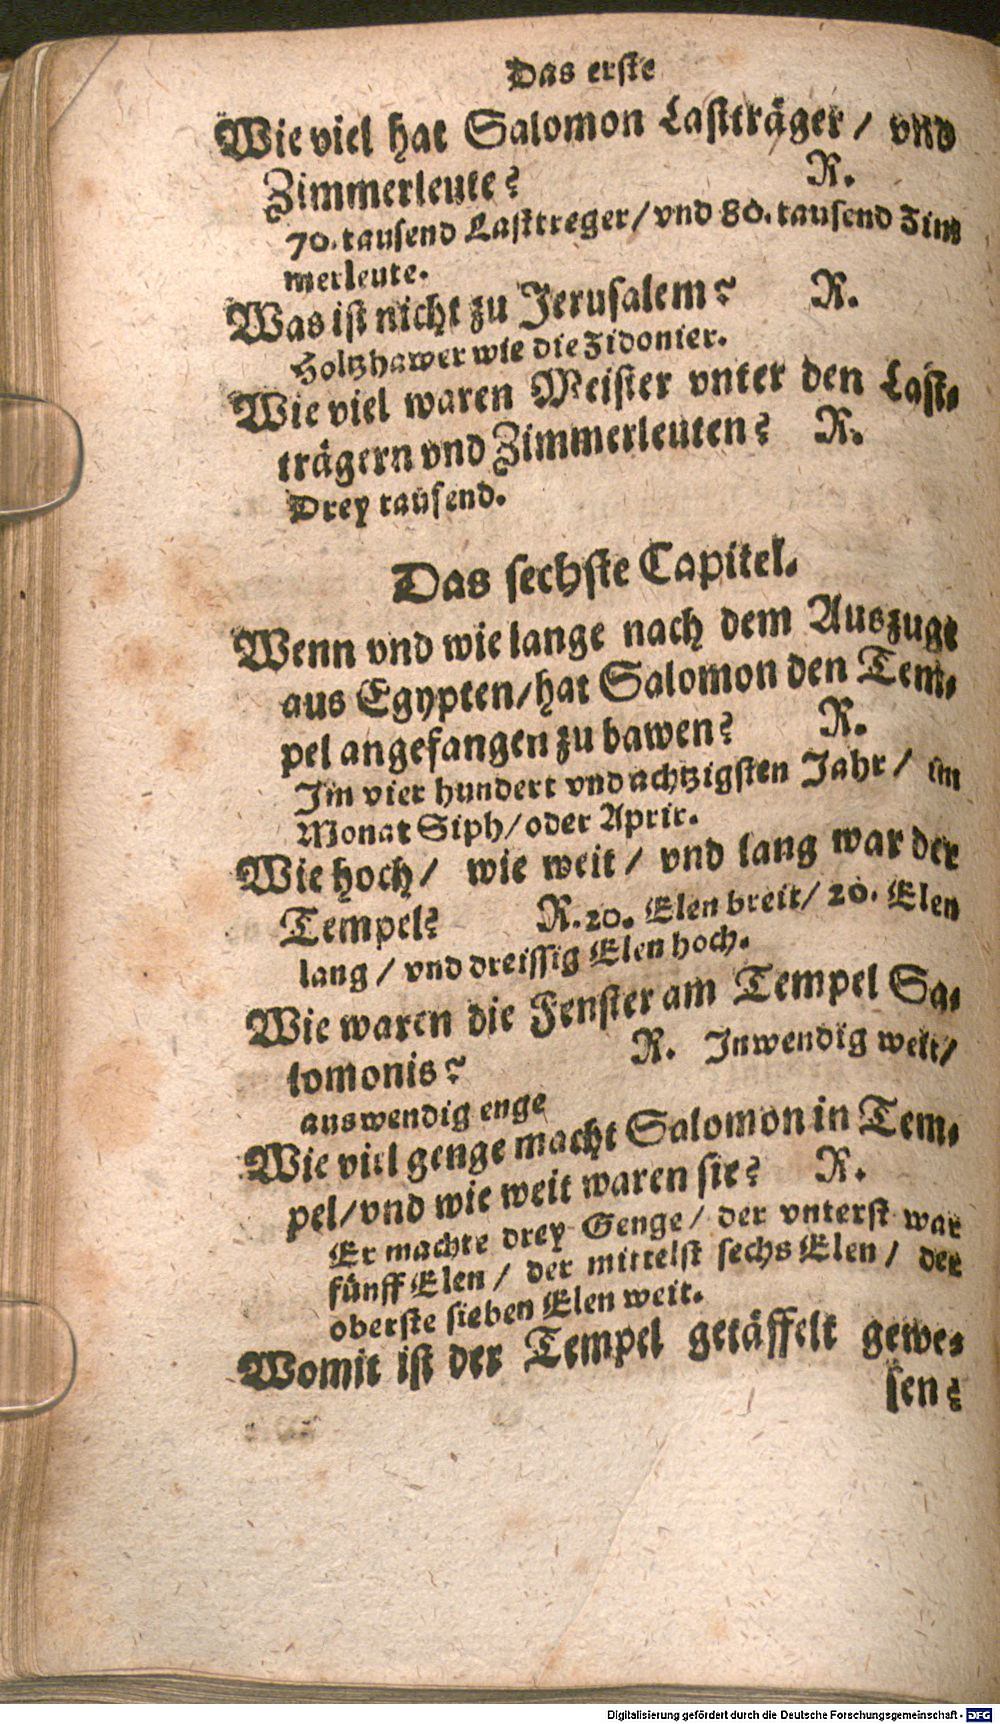 Das erste
Wie viel hat Salomon Lastträger / vnd
Zimmerleute? R.
70. tausend Lasttreger / vnd 80. tausend Zim-
merleute.
Was ist nicht zu Jerusalem? R.
Holtzhawer wie die Zidonier.
Wie viel waren Meister vnter den Last-
trägern vnd Zimmerleuten? R.
Drey tausend.
Das sechste Capitel.
Wenn vnd wie lange nach dem Auszuge
aus Egypten / hat Salomon den Tem-
pel angefangen zu bawen? R.
Im vier hundert vnd achtzigsten Jahr / im
Monat Siph / oder Aprir.
Wie hoch / wie weit / vnd lang war der
Tempel? R. 20. Elen breit / 20. Elen
lang / vnd dreissig Elen hoch.
Wie waren die Fenster am Tempel Sa-
lomonis? R. Inwendig weit /
auswendig enge
Wie viel genge macht Salomon in Tem-
pel / vnd wie weit waren sie? R.
Er machte drey Genge / der vnterst war
fünff Elen / der mittelst sechs Elen / der
oberste sieben Elen weit.
Womit ist der Tempel getäffelt gewe-
sen?
Digitalisierung gefördert durch die Deutsche Forschungsgemeinschaft - DFG